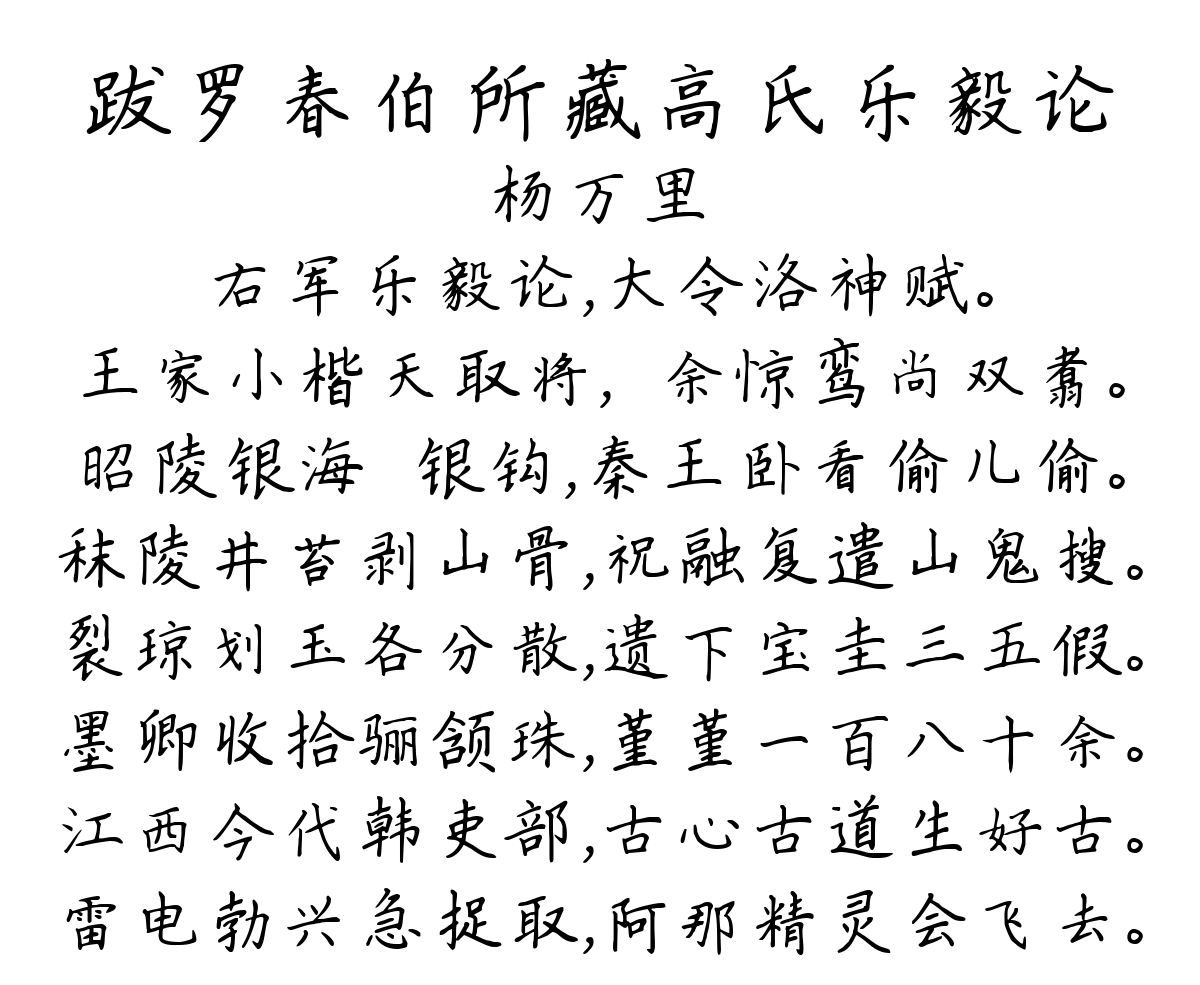 跋罗春伯所藏高氏乐毅论
杨万里
右军乐毅论,大令洛神赋。
王家小楷天取将，余惊鸾尚双翥。
昭陵银海 银钩,秦王卧看偷儿偷。
秣陵井苔剥山骨,祝融复遣山鬼搜。
裂琼划玉各分散,遗下宝圭三五假。
墨卿收拾骊颔珠,堇堇一百八十余。
江西今代韩吏部,古心古道生好古。
雷电勃兴急捉取,阿那精灵会飞去。